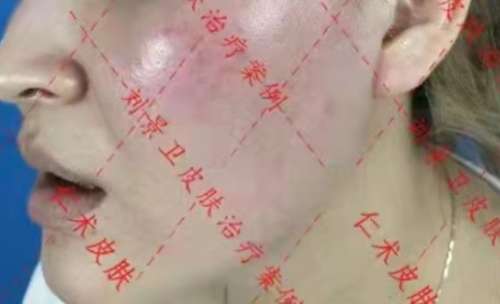 肤治疗案例
刘景卫皮肤治疗案例
仁术皮肤
仁术皮肤